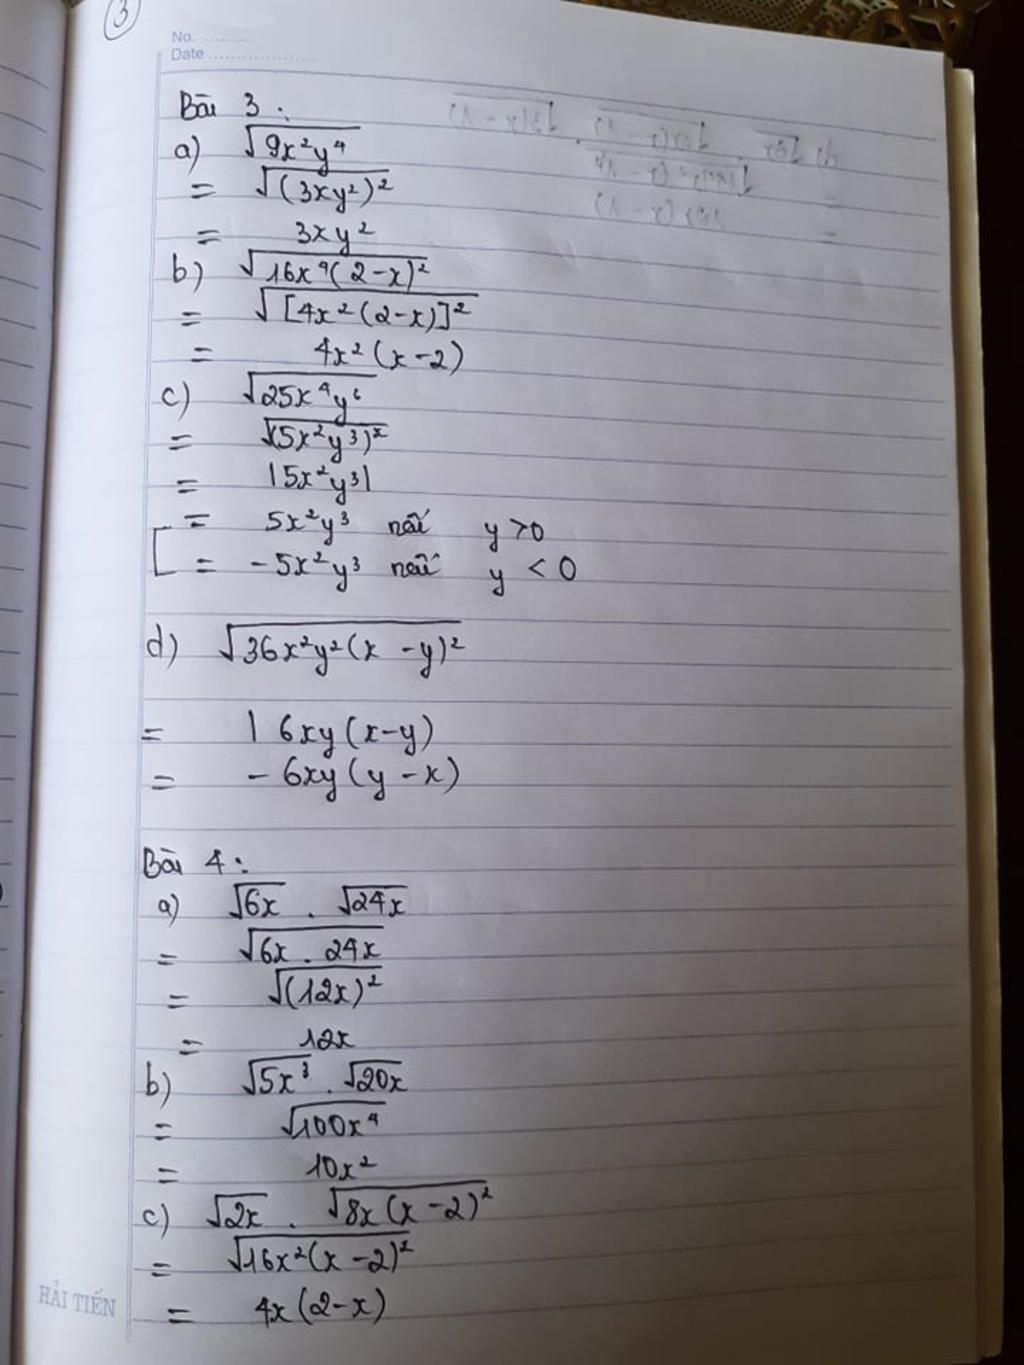 3
No.
Date
Bài 3:
a) √9x²y⁴
= √(3xy²)²
= 3xy²
b) √16x⁴(2-x)²
= √[4x²(2-x)]²
= 4x²(x-2)
c) √25x⁴y⁶
= √(5x²y³)²
= |5x²y³|
= 5x²y³ nếu y>0
= -5x²y³ nếu y < 0
d) √36x²y²(x -y)²
= | 6xy(x-y)
= - 6xy(y-x)
Bài 4:
a) √6x . √24x
= √6x . 24x
= √(12x)²
= 12x
b) √5x³ . √20x
= √100x⁴
= 10x²
c) √2x . √8x(x-2)²
= √16x²(x-2)²
= 4x(2-x)
HẢI TIẾN